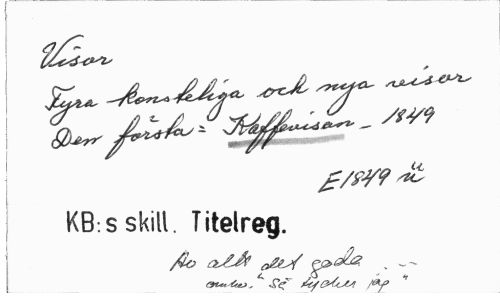 Visor
Fyra konsteliga och nya visor
Den första = Kaffevisan - 1849
E1849 ü
KB:s skill. Titelreg.
Av allt det goda ---
omkv. "Så tycker jag"